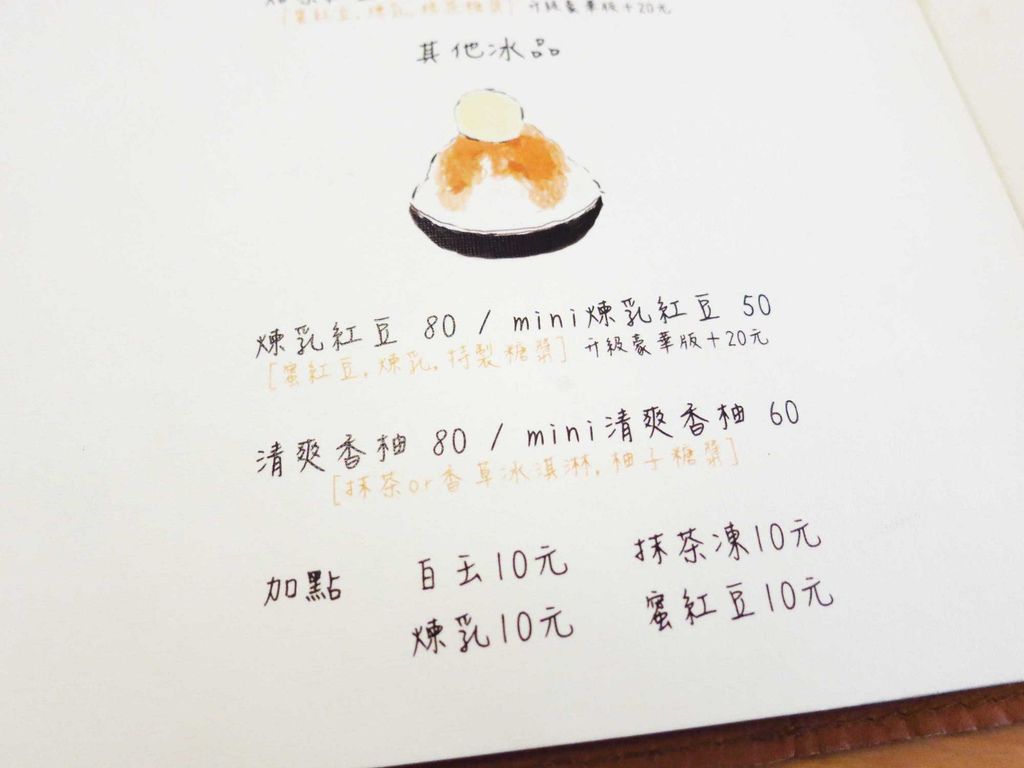 [蜜紅豆, 煉乳, 抹茶糖漿] 升級豪華版+20元
其他冰品
煉乳紅豆 80 / mini煉乳紅豆 50
[蜜紅豆, 煉乳, 特製糖漿] 升級豪華版+20元
清爽香柚 80 / mini清爽香柚 60
[抹茶or香草冰淇淋, 柚子糖漿]
加點 白玉10元 抹茶凍10元
煉乳10元 蜜紅豆10元